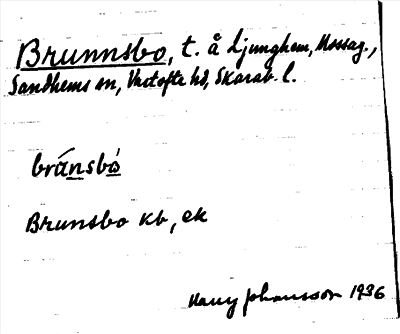 Brunnsbo, t. å Ljunghem, Mossag.,
Sandhems sn, Vartofta hd, Skarab. l.
brúnsbò
Brunsbo kb, ek
Harry Johansson 1936